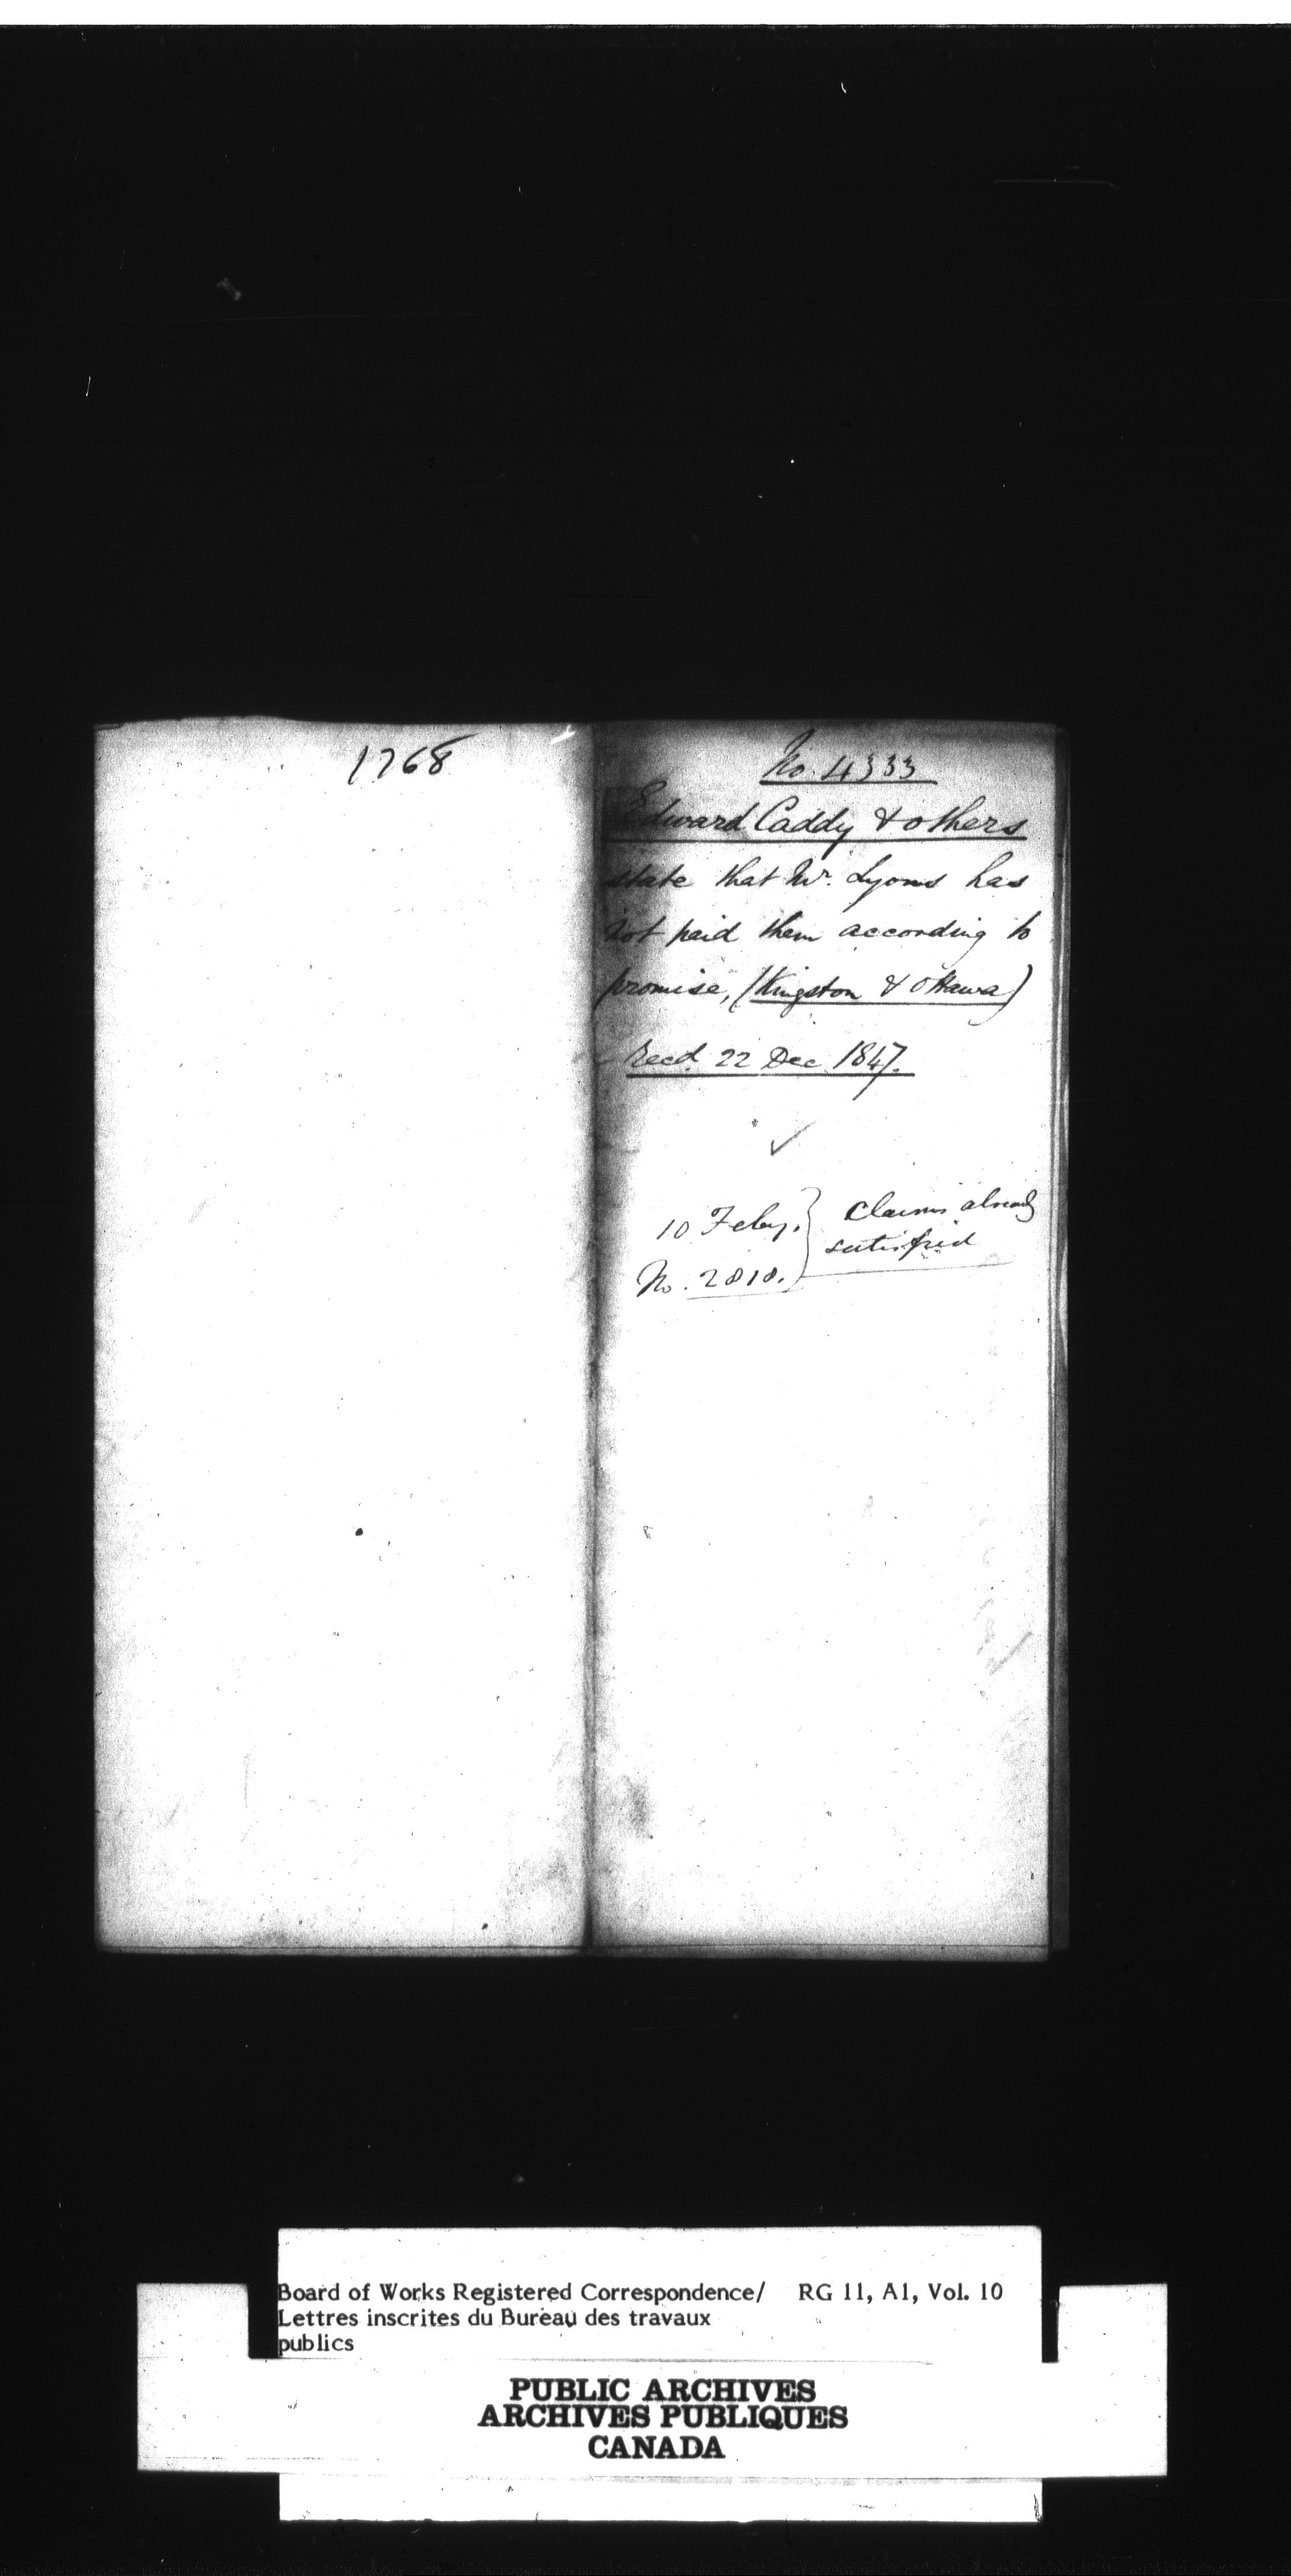 1768
No. 4333
Edward Caddy & others
state that Mr. Lyons has
not paid them according to
promise, (Kingston & Ottawa)
Recd. 22 Dec 1847.
10 Feby. } Claims already
satisfied
No. 2810.
Board of Works Registered Correspondence/ RG 11, A1, Vol. 10
Lettres inscrites du Bureau des travaux
publics
PUBLIC ARCHIVES
ARCHIVES PUBLIQUES
CANADA